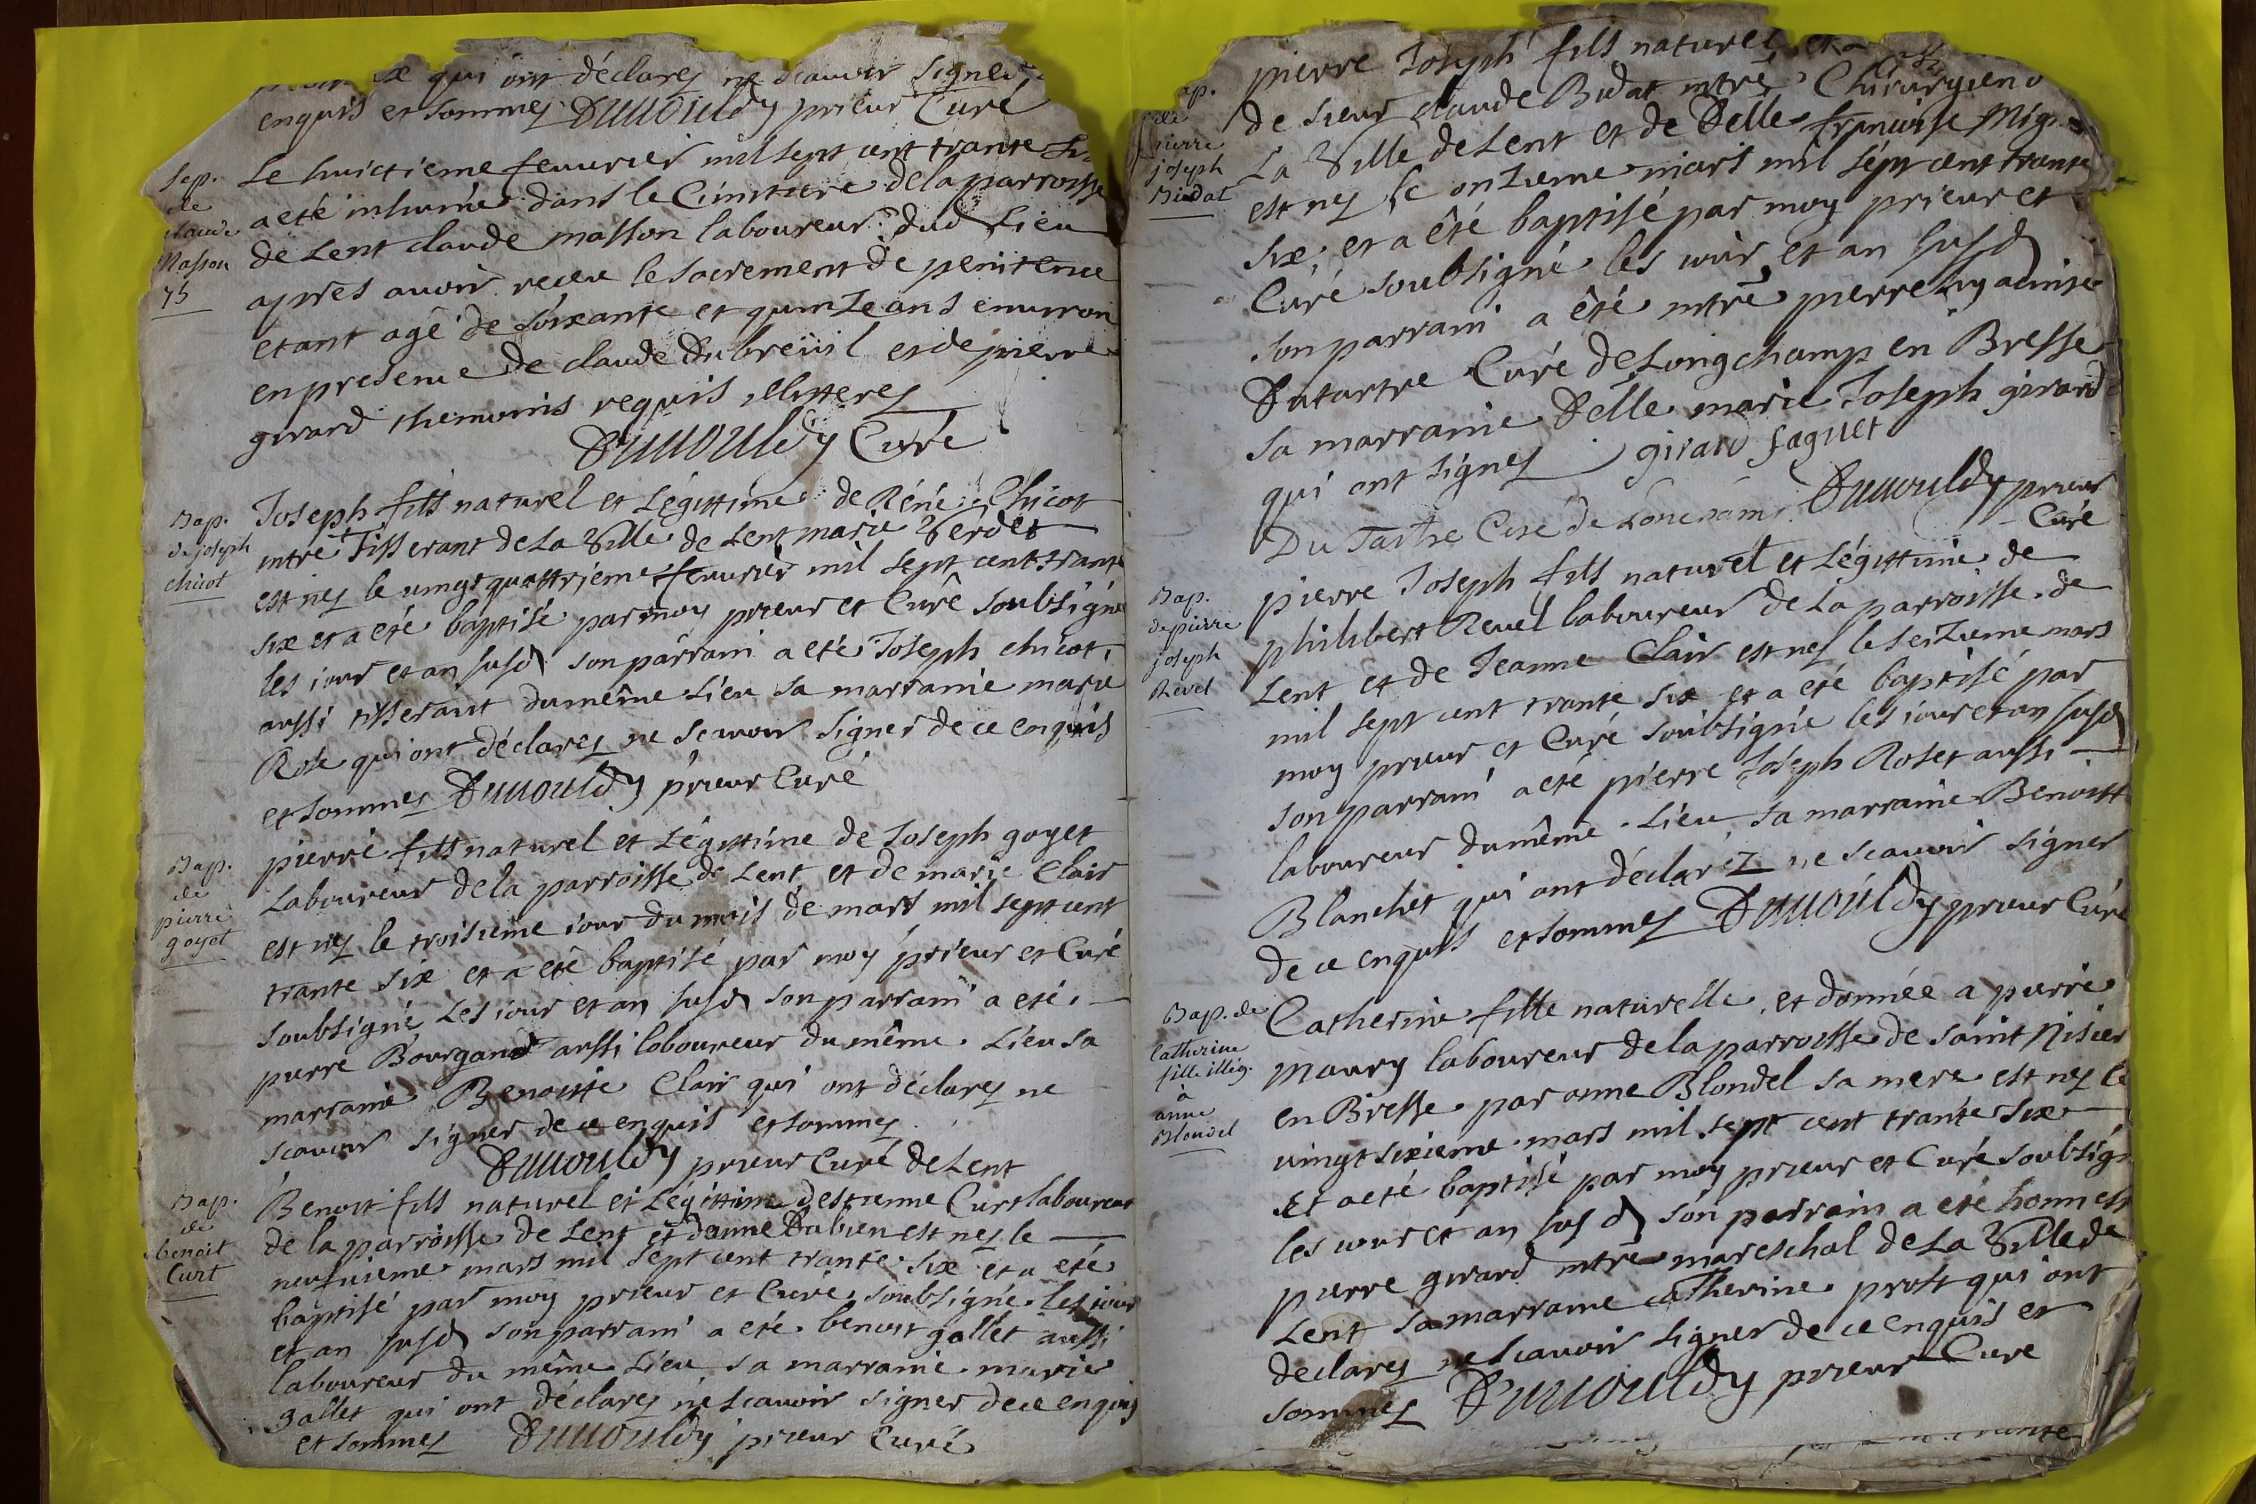 qui ont déclarez ne scauoir signer
enquis et sommez Dunouldy prieur Curé
Sep.
de
claude
Masson
75
Le huictieme feuurier mil sept cent trante six
a eté inhumé dans le Cimitiere de la parroisse
de Lent claude masson laboureur dud Lieu
apres auoir receu le sacrement de penitence
etant agé de soixante et quinze ans enuiron
en presence de claude Dubreüil et de pierre
girard themoins requis illitterez
Dunouldy Curé
Bap.
de joseph
chicot
Joseph fils naturel et Légittime de Réné Chicot
mtre Tisserant de La Ville de Lent marie Verdet
est nez le uingt quattrieme feuurier mil sept cent trante
six et a eté baptisé par moy prieur et Curé soubsigné
les iour et an susd son parrain a eté Joseph chicot
aussi tisserant du même Lieu sa marraine marie
Rose qui ont déclarez ne scauoir signer de ce enquis
et sommez Dunouldy prieur Curé
Bap.
de
pierre
goyet
pierre fils naturel et Légittime de Joseph goyet
Laboureur de la parroisse de Lent et de marie Clair
est nez le troisieme iour du mois de mars mil sept cent
trante six et a eté baptisé par moy prieur et Curé
soubsigné Les iour et an susd son parrain a eté
pierre Bourgand aussi laboureur du même Lieu sa
marraine Benoitte Clair qui ont déclarez ne
scauoir signer de ce enquis et sommez
Dunouldy prieur Curé de Lent
Bap.
de
benoit
Curt
Benoit fils naturel et Légittime destienne Curt laboureur
de la parroisse de Lent et danne Dabien est nez le
neufuieme mars mil sept cent trante six et a eté
baptisé par moy prieur et Curé soubsigné les iour
et an susd son parrain a eté benoit gallet aussi
laboureur du même Lieu sa marraine marie
gallet qui ont déclarez ne scauoir signer de ce enquis
et sommez Dunouldy prieur Curé
Bap.
de
pierre
joseph
Bidat
pierre Joseph fils naturel et
de sieur claude Bidat mtre Chirurgien
La Ville de Lent et de Delle francoise
est nez le onzieme mars mil sept cent trante
six et a été baptisé par moy prieur et
Curé soubsigné les iour et an susd
son parrain a été mtre pierre
Dutartre Curé de Longchamp en Bresse
sa marraine Delle marie Joseph girard
qui ont signez girard faguet
Du Tartre Curé de Dunouldy prieur
Curé
Bap.
de pierre
joseph
Revel
pierre Joseph fils naturel et Légittime de
philibert Reuel laboureur de La parroisse de
Lent et de Jeanne Clair est nez le seizieme mars
mil sept cent trante six et a eté baptisé par
moy prieur et Curé soubsigné les iour et an susd
son parrain a eté pierre Joseph Roset aussi
laboureur du même Lieu sa marraine Benoitte
Blanchet qui ont déclarez ne scauoir signer
de ce enquis et sommez Dunouldy prieur Curé
Bap. de
Catherine
fille illég.
à
anne
Blondel
Catherine fille naturelle et donnée a pierre
Maury laboureur de la parroisse de saint Nisier
en Bresse par anne Blondel sa mere est nez le
uingt sixieme mars mil sept cent trante six
Et a eté baptisé par moy prieur et Curé soubsigné
les iour et an susd son parrain a eté honneste
pierre girard mtre mareschal de La Ville de
Lent sa marraine catherine prost qui ont
declarez ne scauoir signer de ce enquis et
sommez Dunouldy prieur Curé